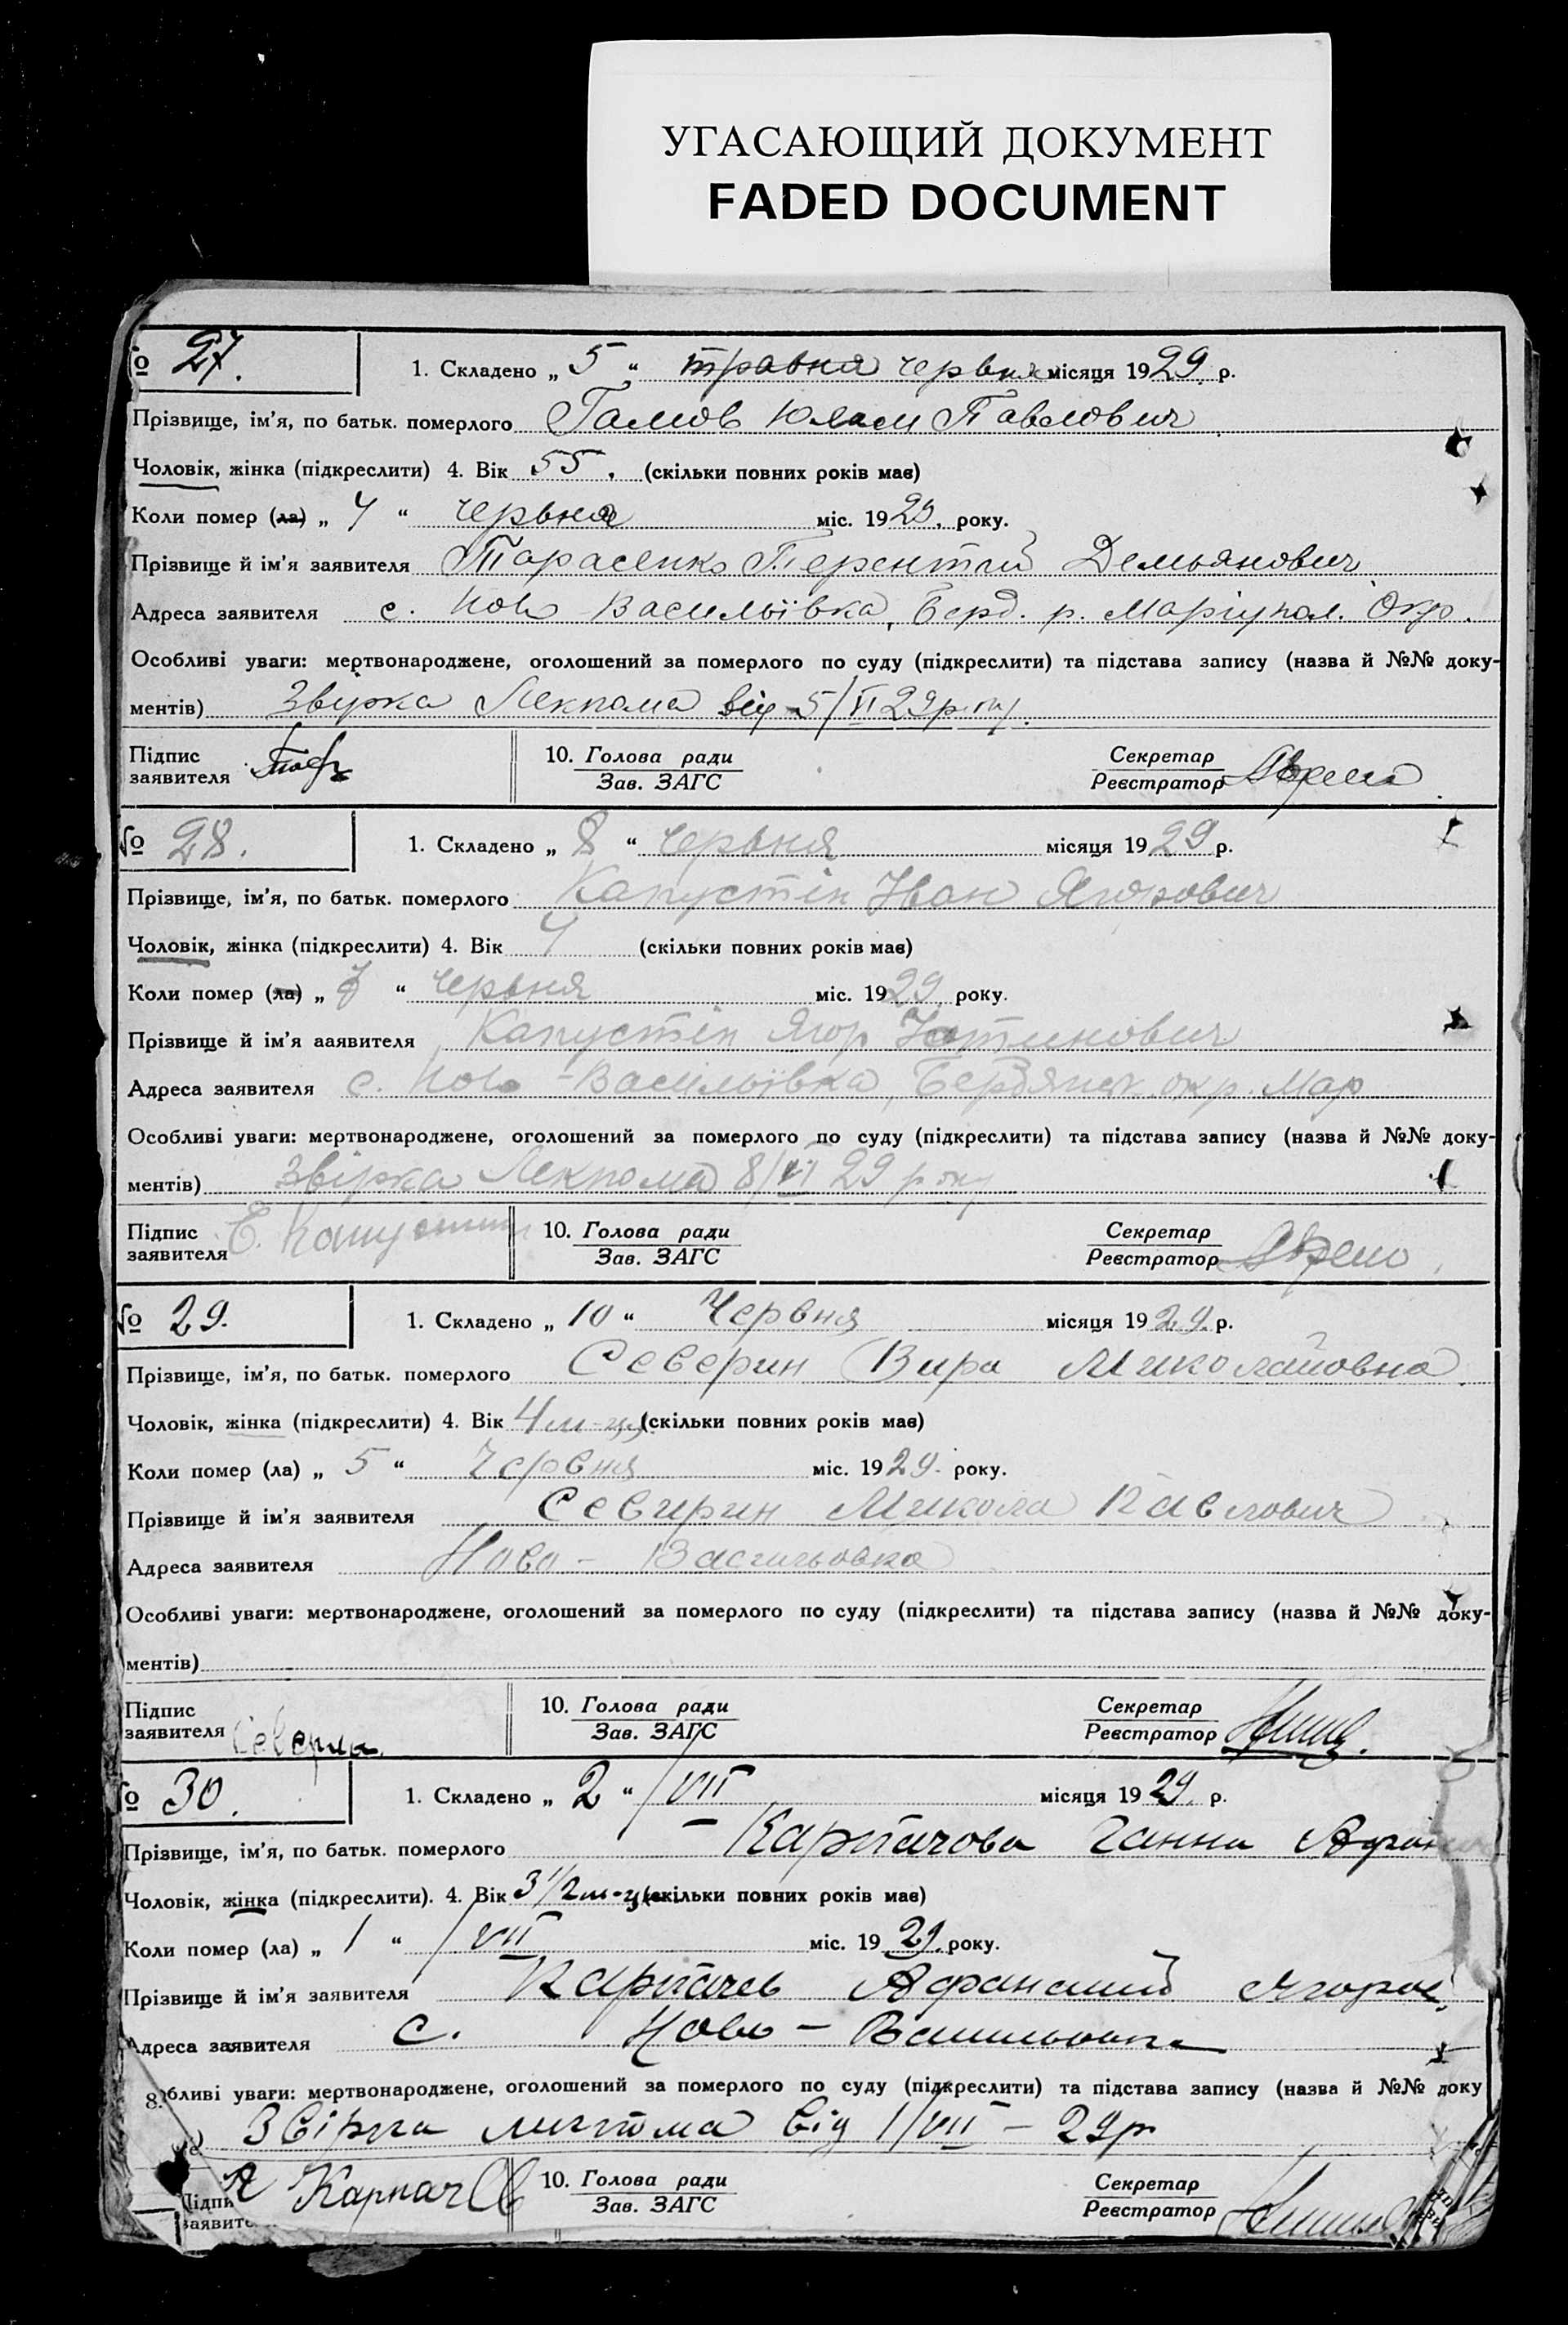 УГАСАЮЩИЙ ДОКУМЕНТ
FADED DOCUMENT
№ 27.
1. Складено „ 5 “ травня червня місяця 1929. р.
Прізвище, ім'я, по батьк. померлого Павлович
Чоловік, жінка (підкреслити) 4. Вік 55. (скільки повних років має)
Коли помер (ла) „ 4 “ червня міс. 1929. року.
Прізвище й ім'я заявителя Тарасенко Терентий Демьянович
Адреса заявителя с. Ново Васильївка, Берд. р. Маріупол. Окр.
Особливі уваги: мертвонароджене, оголошений за померлого по суду (підкреслити) та підстава запису (назва й №№ доку-
ментів) Звірка Лекпома від 5/VI 29 року.
Підпис
заявителя
10. Голова ради
Зав. ЗАГС
Секретар
Реєстратор
№ 28.
1. Складено „ 8 “ червня місяця 1929 р.
Прізвище, ім'я, по батьк. померлого Капустін Іван Ягорович
Чоловік, жінка (підкреслити) 4. Вік 4 (скільки повних років має)
Коли помер (ла) „ “ червня міс. 1929 року.
Прізвище й ім'я ааявителя Капустін Ягор
Адреса заявителя с. Ново-Васильївка, Бердянск. окр. Мар
Особливі уваги: мертвонароджене, оголошений за померлого по суду (підкреслити) та підстава запису (назва й №№ доку-
ментів) Звірка Лекпома 8/VI 29 року
Підпис
заявителя Е. Капустин
10. Голова ради
Зав. ЗАГС
Секретар
Реєстратор
№ 29.
1. Складено „ 10 “ Червня місяця 1929. р.
Прізвище, ім'я, по батьк. померлого Северин Вира Миколайовна
Чоловік, жінка (підкреслити) 4. Вік 4 м-ця (скільки повних років має)
Коли помер (ла) „ 5 “ Червня міс. 1929. року.
Прізвище й ім'я заявителя Севирин Микола Павлович
Адреса заявителя Ново - Васильовка
Особливі уваги: мертвонароджене, оголошений за померлого по суду (підкреслити) та підстава запису (назва й №№ доку-
ментів)
Підпис
заявителя Северин
10. Голова ради
Зав. ЗАГС
Секретар
Реєстратор
№ 30.
1. Складено „ 2 “ /VII місяця 1929. р.
Прізвище, ім'я, по батьк. померлого Карпачова Ганна
Чоловік, жінка (підкреслити). 4. Вік 3 1/2 м-ця (скільки повних років має)
Коли помер (ла) „ 1 “ /VII міс. 1929. року.
Прізвище й ім'я заявителя Карпачев Афанасий Ягоров.
Адреса заявителя с. Ново - Васильовка
8. бливі уваги: мертвонароджене, оголошений за померлого по суду (підкреслити) та підстава запису (назва й №№ доку
Звірка від 1/VII - 29р
Підпи
заявите
А Карпачев
10. Голова ради
Зав. ЗАГС
Секретар
Реєстратор